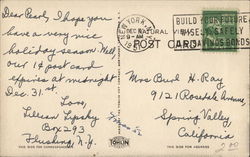 Dear Pearl, I hope you
have a very nice
holiday season. Well
our 1¢ post card
expires at midnight
Dec. 31st.
Love,
Lillian Lipsky
Box 293
Flushing, N.Y.
NEW YORK, N.Y.
DEC
9-AM
BUILD YOUR FUTURE
WISELY SAFELY
U.S. SAVINGS BONDS
NATURAL
POST CARD
Mrs Burd H. Ray
9121 Rosedale Avenue
Spring Valley,
California
2.00
THIS SIDE FOR CORRESPONDENCE
TOMLIN
THIS SIDE FOR ADDRESS